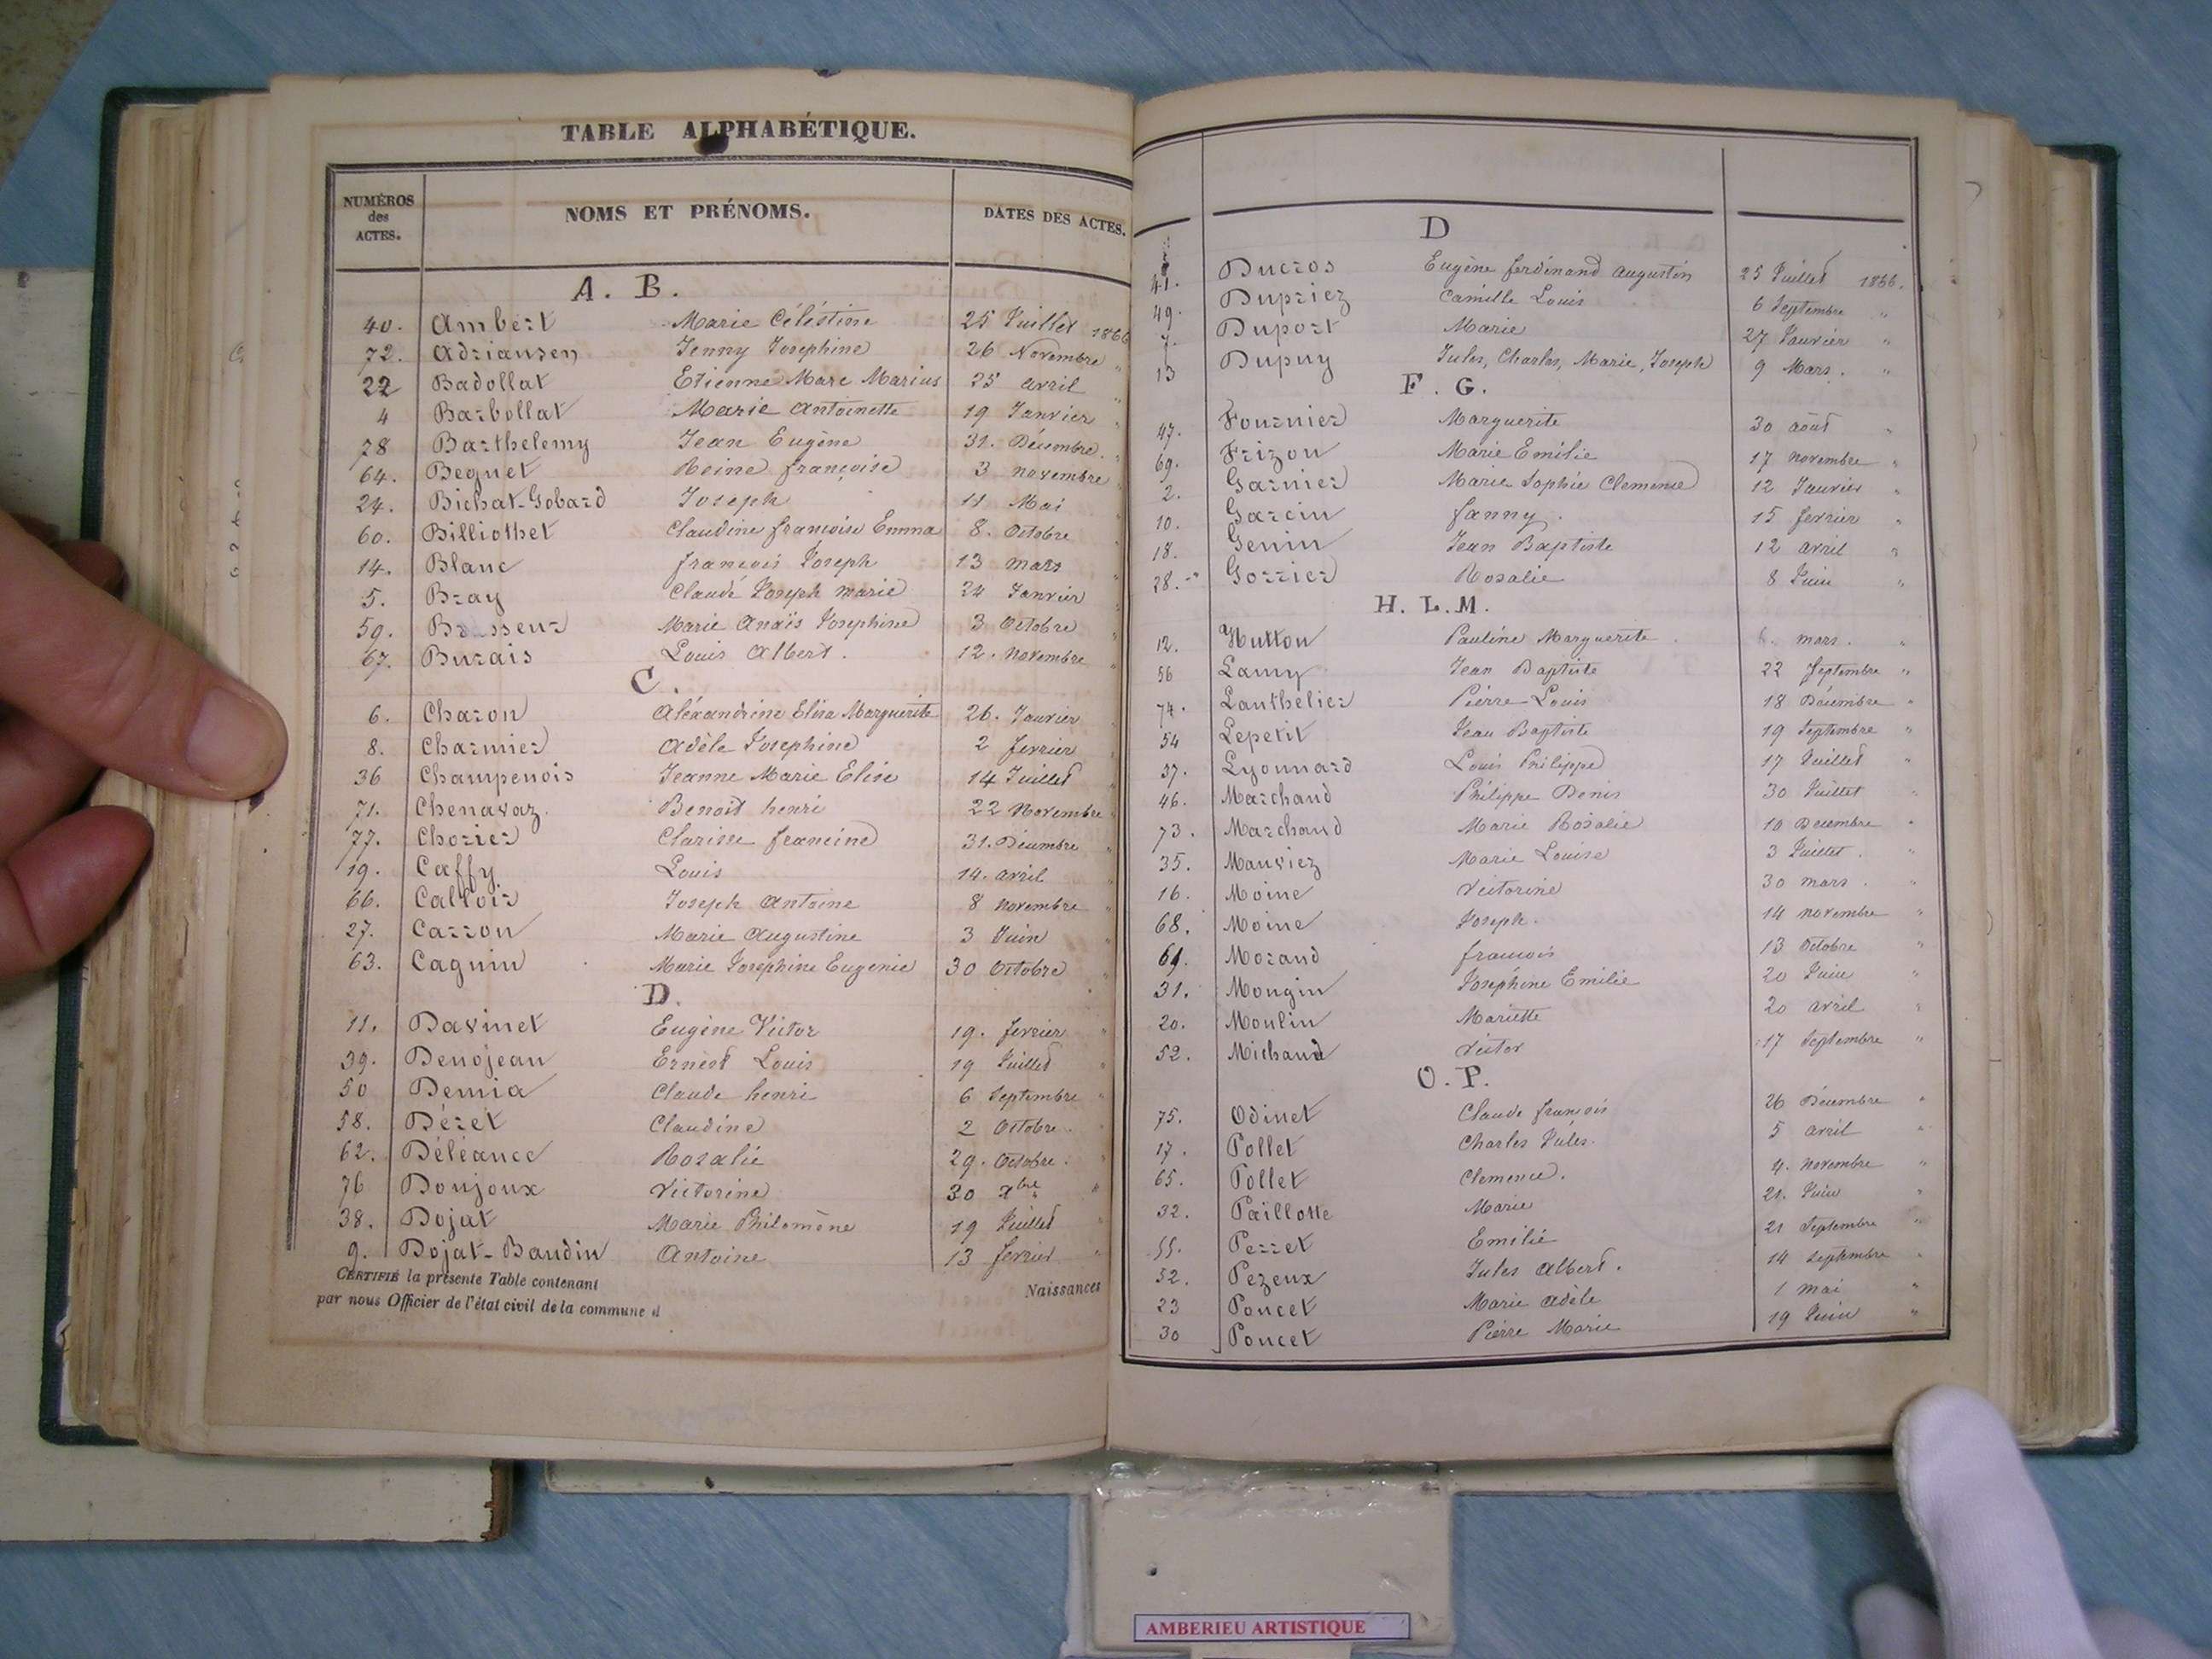 TABLE ALPHABÉTIQUE.
NUMÉROS des ACTES. NOMS ET PRÉNOMS. DATES DES ACTES.
A. B.
40. Ambert Marie Céléstine 25 Juillet 1866
72. Adriansen Jenny Josephine 26 Novembre "
22 Badollat Etienne Marc Marius 25 avril "
4 Barbollat Marie Antoinette 19 Janvier "
78 Barthelemy Jean Eugène 31. Décembre "
64. Beguet Reine françoise 3 novembre "
24. Bichat-Gobard Joseph 11 Mai
60. Billiothet Claudine françoise Emma 8. Octobre "
14. Blanc françois Joseph 13 mars "
5. Bray Claude Joseph marie 24 Janvier "
59. Marie Anaïs Josephine 3 Octobre "
67. Burais Louis Albert. 12. novembre "
C.
6. Charon Aléxandrine Elisa Marguerite 26. Janvier "
8. Charmier Adèle Josephine 2 fevrier "
36 Champenois Jeanne Marie Elise 14 Juillet "
71. Chenavaz. Benoit henri 22 Novembre "
77. Chorier Clarisse francine 31. Décembre "
19. Caffy. Louis 14. avril "
66. Calloir Joseph Antoine 8 novembre "
27. Carron Marie Augustine 3 Juin "
63. Caguin Marie Josephine Eugenie 30 Octobre "
D.
11. Davinet Eugène Victor 19. fevrier "
39. Denojean Ernest Louis 19 Juillet "
50 Demia Claude henri 6 Septembre "
58. Dézet Claudine 2 Octobre. "
62. Déléance Rosalie 29. Octobre. "
76 Doujoux Victorine 30 Xbre "
38. Dojat Marie Philomène 19 Juillet "
9. Dojat-Baudin Antoine 13 fevrier "
CERTIFIÉ la présente Table contenant Naissances
par nous Officier de l'état civil de la commune d
D
41. Ducros Eugène ferdinand augustin 25 Juillet 1866.
49. Dupriez Camille Louis 6 Septembre "
7. Duport Marie 27 Janvier "
13 Dupuy Jules, Charles, Marie, Joseph 9 Mars. "
F. G.
47. Fournier Marguerite 30 août "
69. Frizon Marie Emilie 17 novembre "
2. Garnier Marie Sophie Clemence 12 Janvier "
10. Garcin fanny. 15 fevrier "
18. Genin Jean Baptiste 12 avril "
28. Gorrier Rosalie 8 Juin "
H. L. M.
12. Hutton Pauline Marguerite. 6. mars. "
56 Lamy Jean Baptiste 22 Septembre "
74. Lanthelier Pierre-Louis 18 Décembre "
54 Lepetit Jean Baptiste 19 Septembre "
37. Lyonnard Louis Philippe 17 Juillet "
46. Marchand Philippe Denis 30 Juillet "
73. Marchand Marie Rosalie 10 Décembre "
35. Mauviez Marie Louise 3 Juillet. "
16. Moine Victorine 30 mars. "
68. Moine Joseph. 14 novembre "
61. Morand francois 13 Octobre "
31. Mongin Joséphine Emilie 20 Juin "
20. Moulin Mariette 20 avril "
52. Michaud Victor 17 Septembre "
O. P.
75. Odinet Claude françois 26 Décembre "
17. Pollet Charles Jules. 5 avril "
65. Pollet Clemence. 4. novembre "
32. Paillotte Marie 21. Juin "
55. Perret Emilie 21 Septembre "
52. Pezeux Jules Albert. 14 Septembre "
23 Poncet Marie Adèle 1 mai "
30 Poncet Pierre Marie 19 Juin "
AMBERIEU ARTISTIQUE